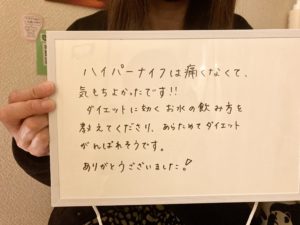 ハイパーナイフは痛くなくて、
気もちよかったです!!
ダイエットに効くお水の飲み方を
教えてくださり、あらためてダイエット
がんばれそうです。
ありがとうございました!